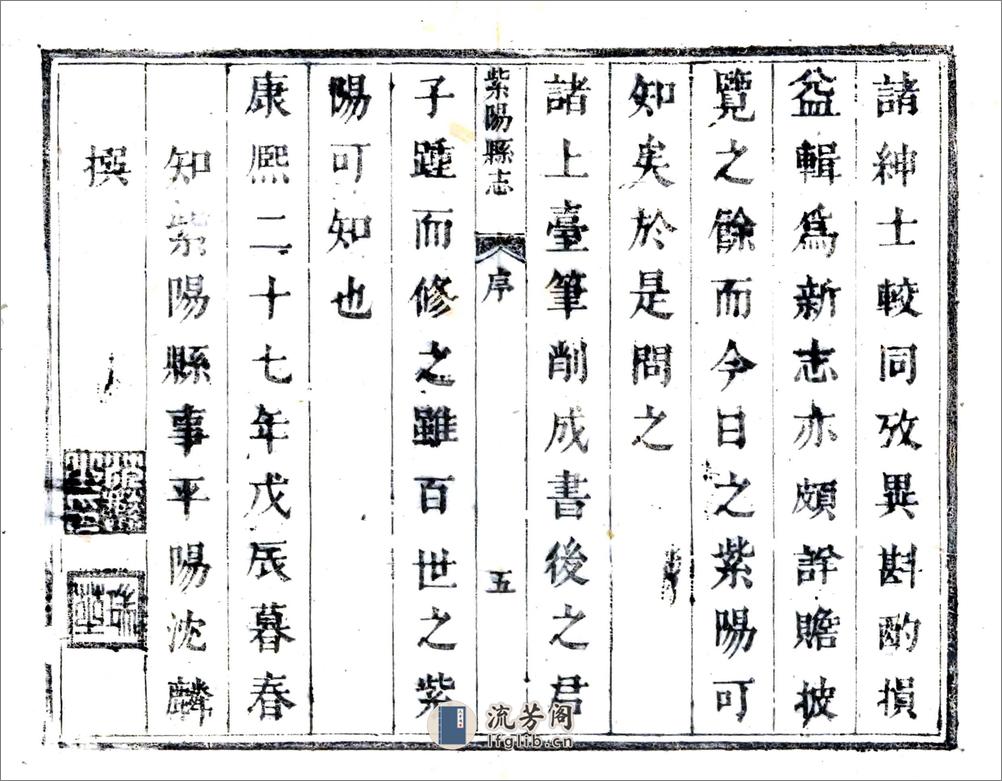 諸紳士較同攷異斟酌損
益輯爲新志亦頗詳贍披
覽之餘而今日之紫陽可
知矣於是問之
諸上臺筆削成書後之君
紫陽縣志 序 五
子踵而修之雖百世之紫
陽可知也
康熙二十七年戊辰暮春
知紫陽縣事平陽沈麟
撰
流芳阁
lfglib.cn